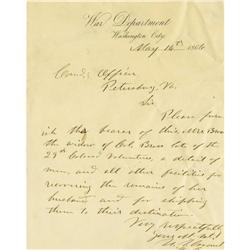 War Department
Washington City
May 14th 1866
Comd'g Officer
Petersburg, Va.
Sir
Please furn
ish the bearer of this, Mrs
the widow of Col. Bross late of the
29th Colored Volunteers, a detail of
men, and all other facilities for
recovering the remains of her
husband and for shipping
them to their destination.
Very respectfully
your obt